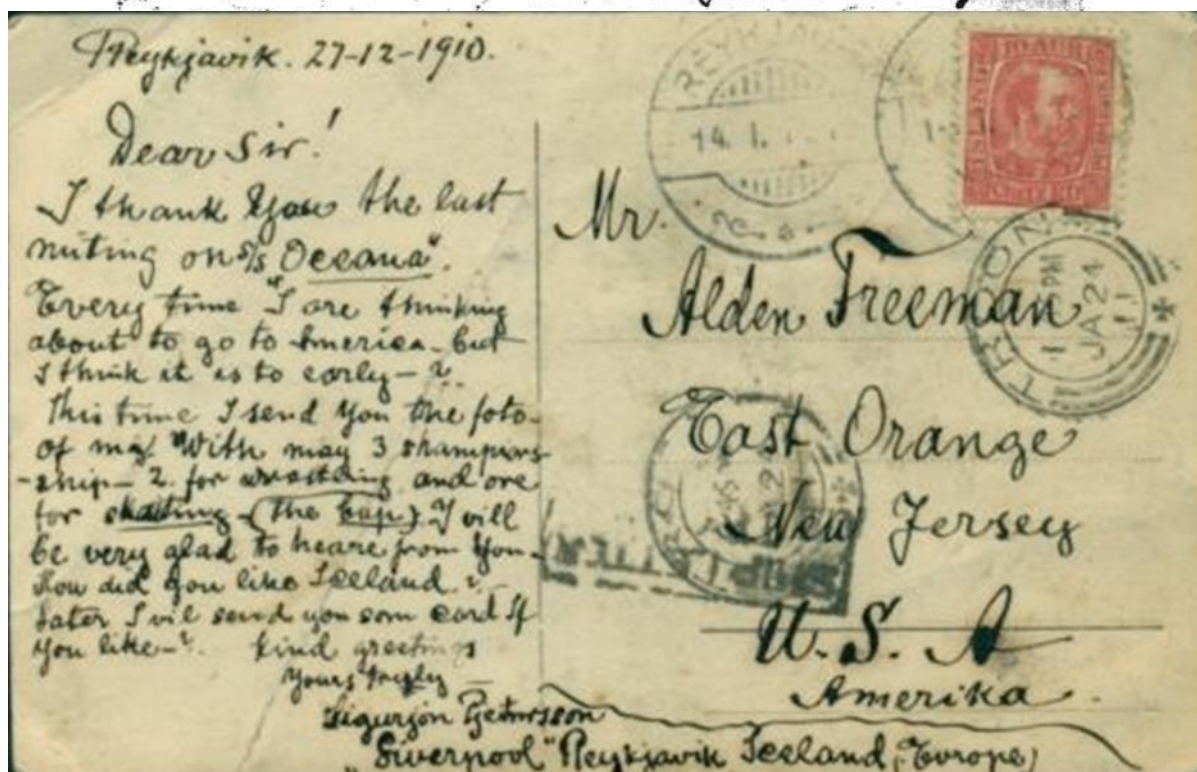 Reykjavik. 27-12-1910.
Dear Sir!
I thank You the last
miting on s/s "Oceana".
Every time I are thinking
about to go to America - but
I think it is to early - ?.
This time I send You the foto-
of my. With may 3 shampions-
-ship - 2. for wrestling and one
for skating - (the cap). I will
be very glad to heare from You -
How did you like Iceland ?
Later I vil send you som card if
you like - ?. Kind greetings
Yours truly -
Sigurjón Pjetursson
"Liverpool" Reykjavik Iceland (Europe)
Mr.
Alden Freeman
East Orange
New Jersey
U. S. A
Amerika.
REYKJAVIK
14. 1.
ISLAND
10 AUR
TROON
1 PM
JA 24
11
SHIP LETTER